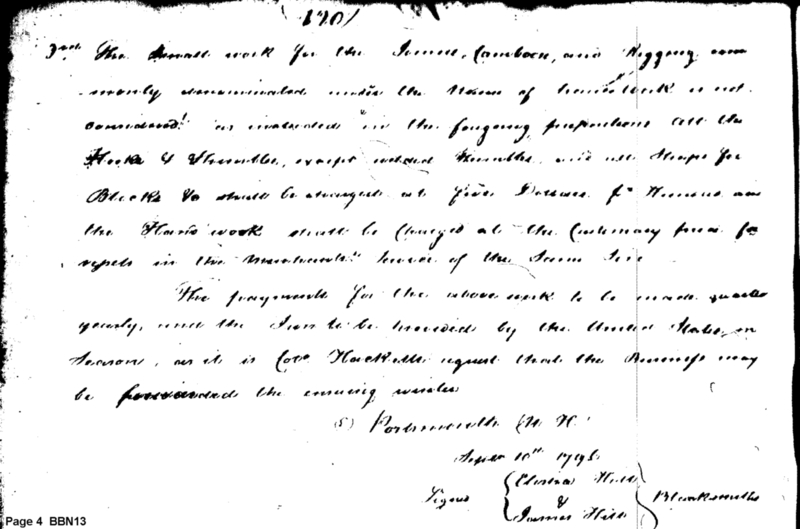 170
3rd The Small work for the Tunnel, Caboose, and Rigging com
monly denominated under the Name of hand Work is not
considered as included in the foregoing propositions all the
Hooks & Thimbles, except welded Thimbles, and all Straps for
Blocks &c shall be charged at five Dollars pr Hundred and
the Hand work shall be Charged at the Customary price for
vessels in the Merchants Service of the Same Size
The payments for the above work to be made quarter
yearly, and the Iron to be provided by the United States, in
Season, as it is Colo Hacketts request that the Business may
be forwarded the ensuing winter
(S) Portsmouth N H
Septr 10th 1795
Signed Elisha Hill
& Blacksmiths
James Hill
Page 4 BBN13